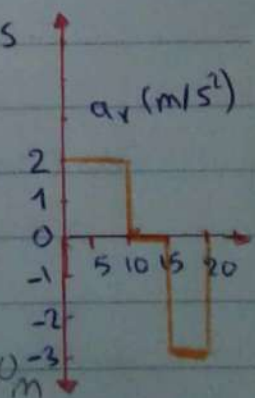 s
aᵧ (m/s²)
2
1
0
5 10 15 20
-1
-2
-3